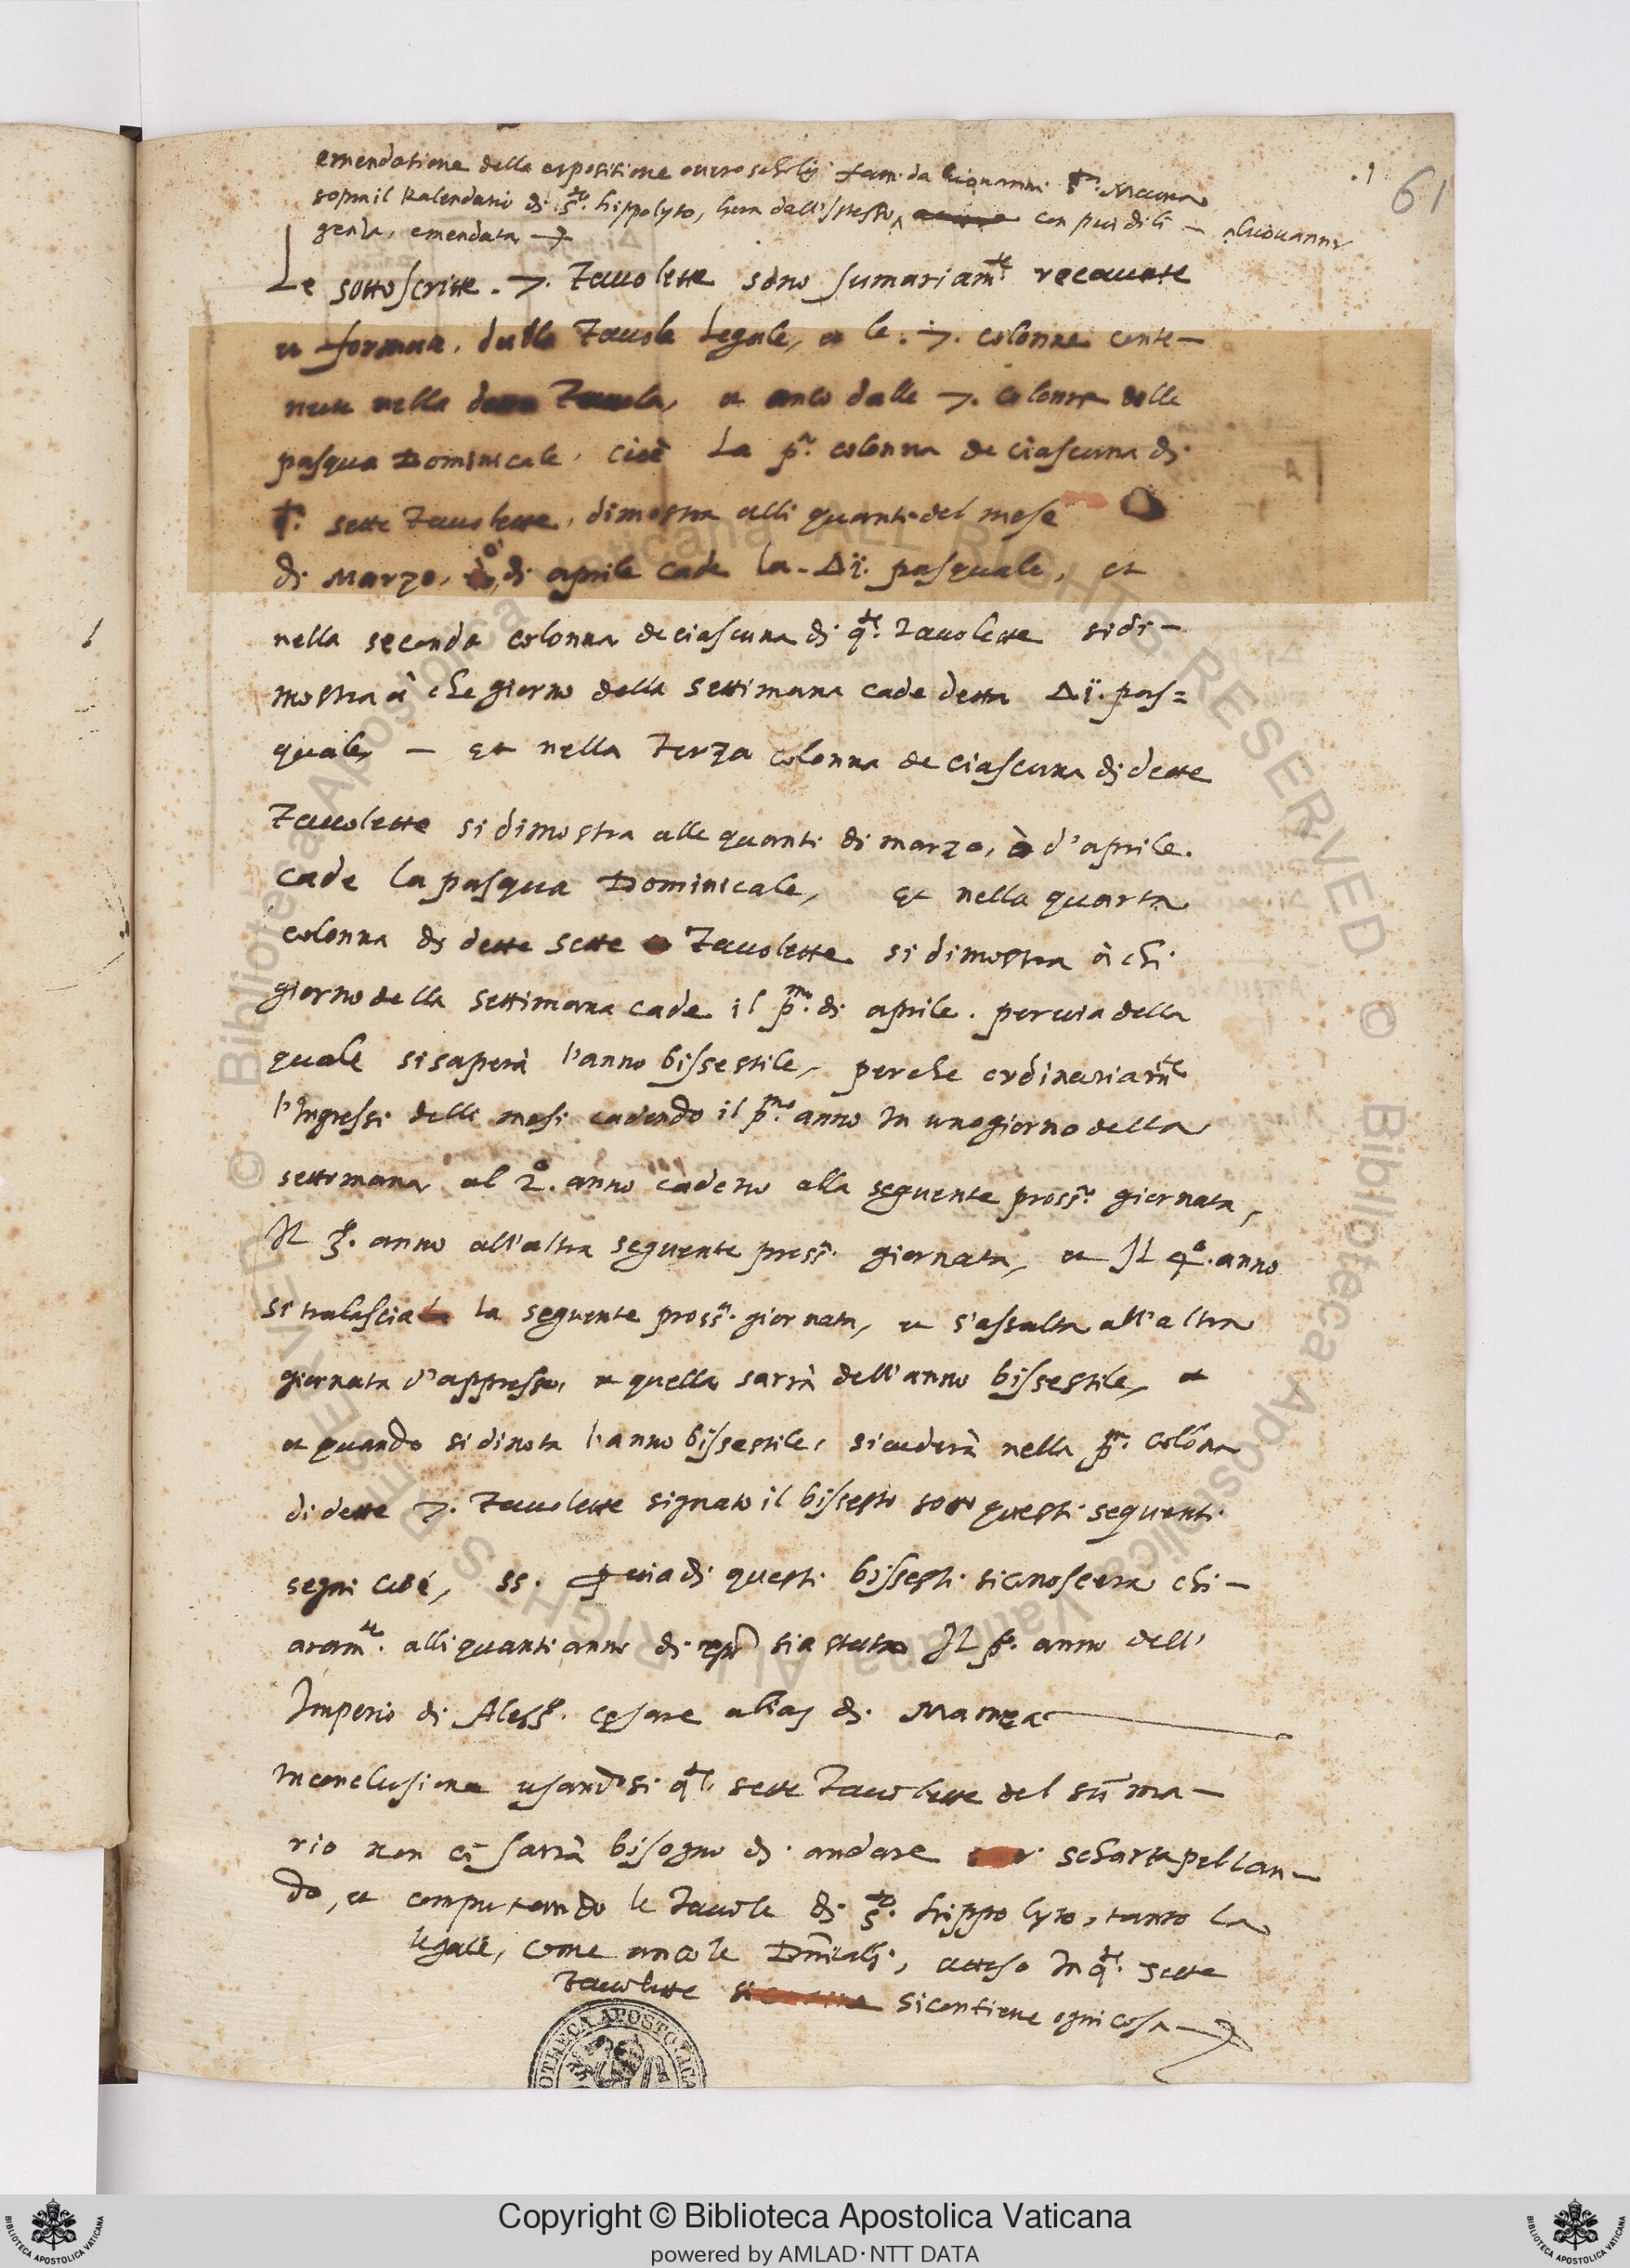 emendatione della espositione overo scholij fatti da Giovanni
sopra il Kalendario di S.to hippolyto, hora dall'istesso con piu dili – Giovanni
genza, emendata
.1
61
Le sottoscritte .7. Tavolette sono sumariam.te recavate
et formate, dalla Tavola Legale, et le .7. colonne conte–
nute nella detta Tavola, et anco dalle 7. colonna delle
pasqua Dominicale, cioè La p.a colonna de ciascuna di
sette Tavolette, dimostra alli quanti del mese
di Marzo, ò di aprile cade la Δï. pasquale, et
nella seconda colonna de ciascuna di q.te Tavolette si di–
mostra à che giorno della settimana cade detta Δï. pas=
quale – et nella Terza colonna de ciascuna di dette
Tavolette si dimostra alli quanti di marzo, ò d'aprile.
cade la pasqua Dominicale, et nella quarta
colonna di dette sette Tavolette si dimostra à chi
giorno della settimana cade il p.mo di aprile. per via della
quale si saperà l'anno bissestile, perche ordinariam.te
l'Ingressi delli mesi cadendo il p.mo anno In uno giorno della
settimana al 2.o anno cadeno alla seguente pross.a giornata,
Il 3.o anno all'altra seguente pross.a giornata, et Il 4.o anno
si tralascia la seguente pross.a giornata, et s'assalta all'altra
giornata d'appresso, et quella sarrà dell'anno bissestile, et
et quando si dinota l'anno bissestile, si vederà nella p.a colona
di dette 7. Tavolette signato il bissesto con questi sequenti
segni cioè, ss. via di questi bissesti si conoscera chi–
aram.te alli quanti anni di sia stato Il p.o anno dell'
Imperio di Aless.o cesare alias di Mamea
In conclusione usandosi q.te sette Tavolette del sūma–
rio non ci sarrà bisogno di andare scharta pellan–
do, et computando le tavole di S.to hippolyto, tanto la
legale, come anco le Dnicali, atteso In q.te sette
Tavolette si contiene ogni cosa
© Biblioteca Apostolica Vaticana ALL RIGHTS RESERVED © Biblioteca Apostolica Vaticana ALL RIGHTS RESERVED
BIBLIOTHECA APOSTOLICA
Copyright © Biblioteca Apostolica Vaticana
powered by AMLAD·NTT DATA
BIBLIOTECA APOSTOLICA VATICANA
BIBLIOTECA APOSTOLICA VATICANA